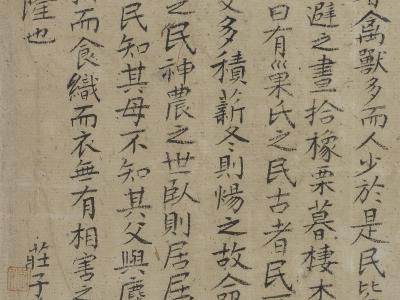 者禽獸多而人少於是民皆
避之晝拾橡栗暮棲木
曰有巢氏之民古者民
多積薪冬則煬之故命
之民神農之世臥則居居
民知其母不知其父與麋
而食織而衣無有相害之
隆也
莊子